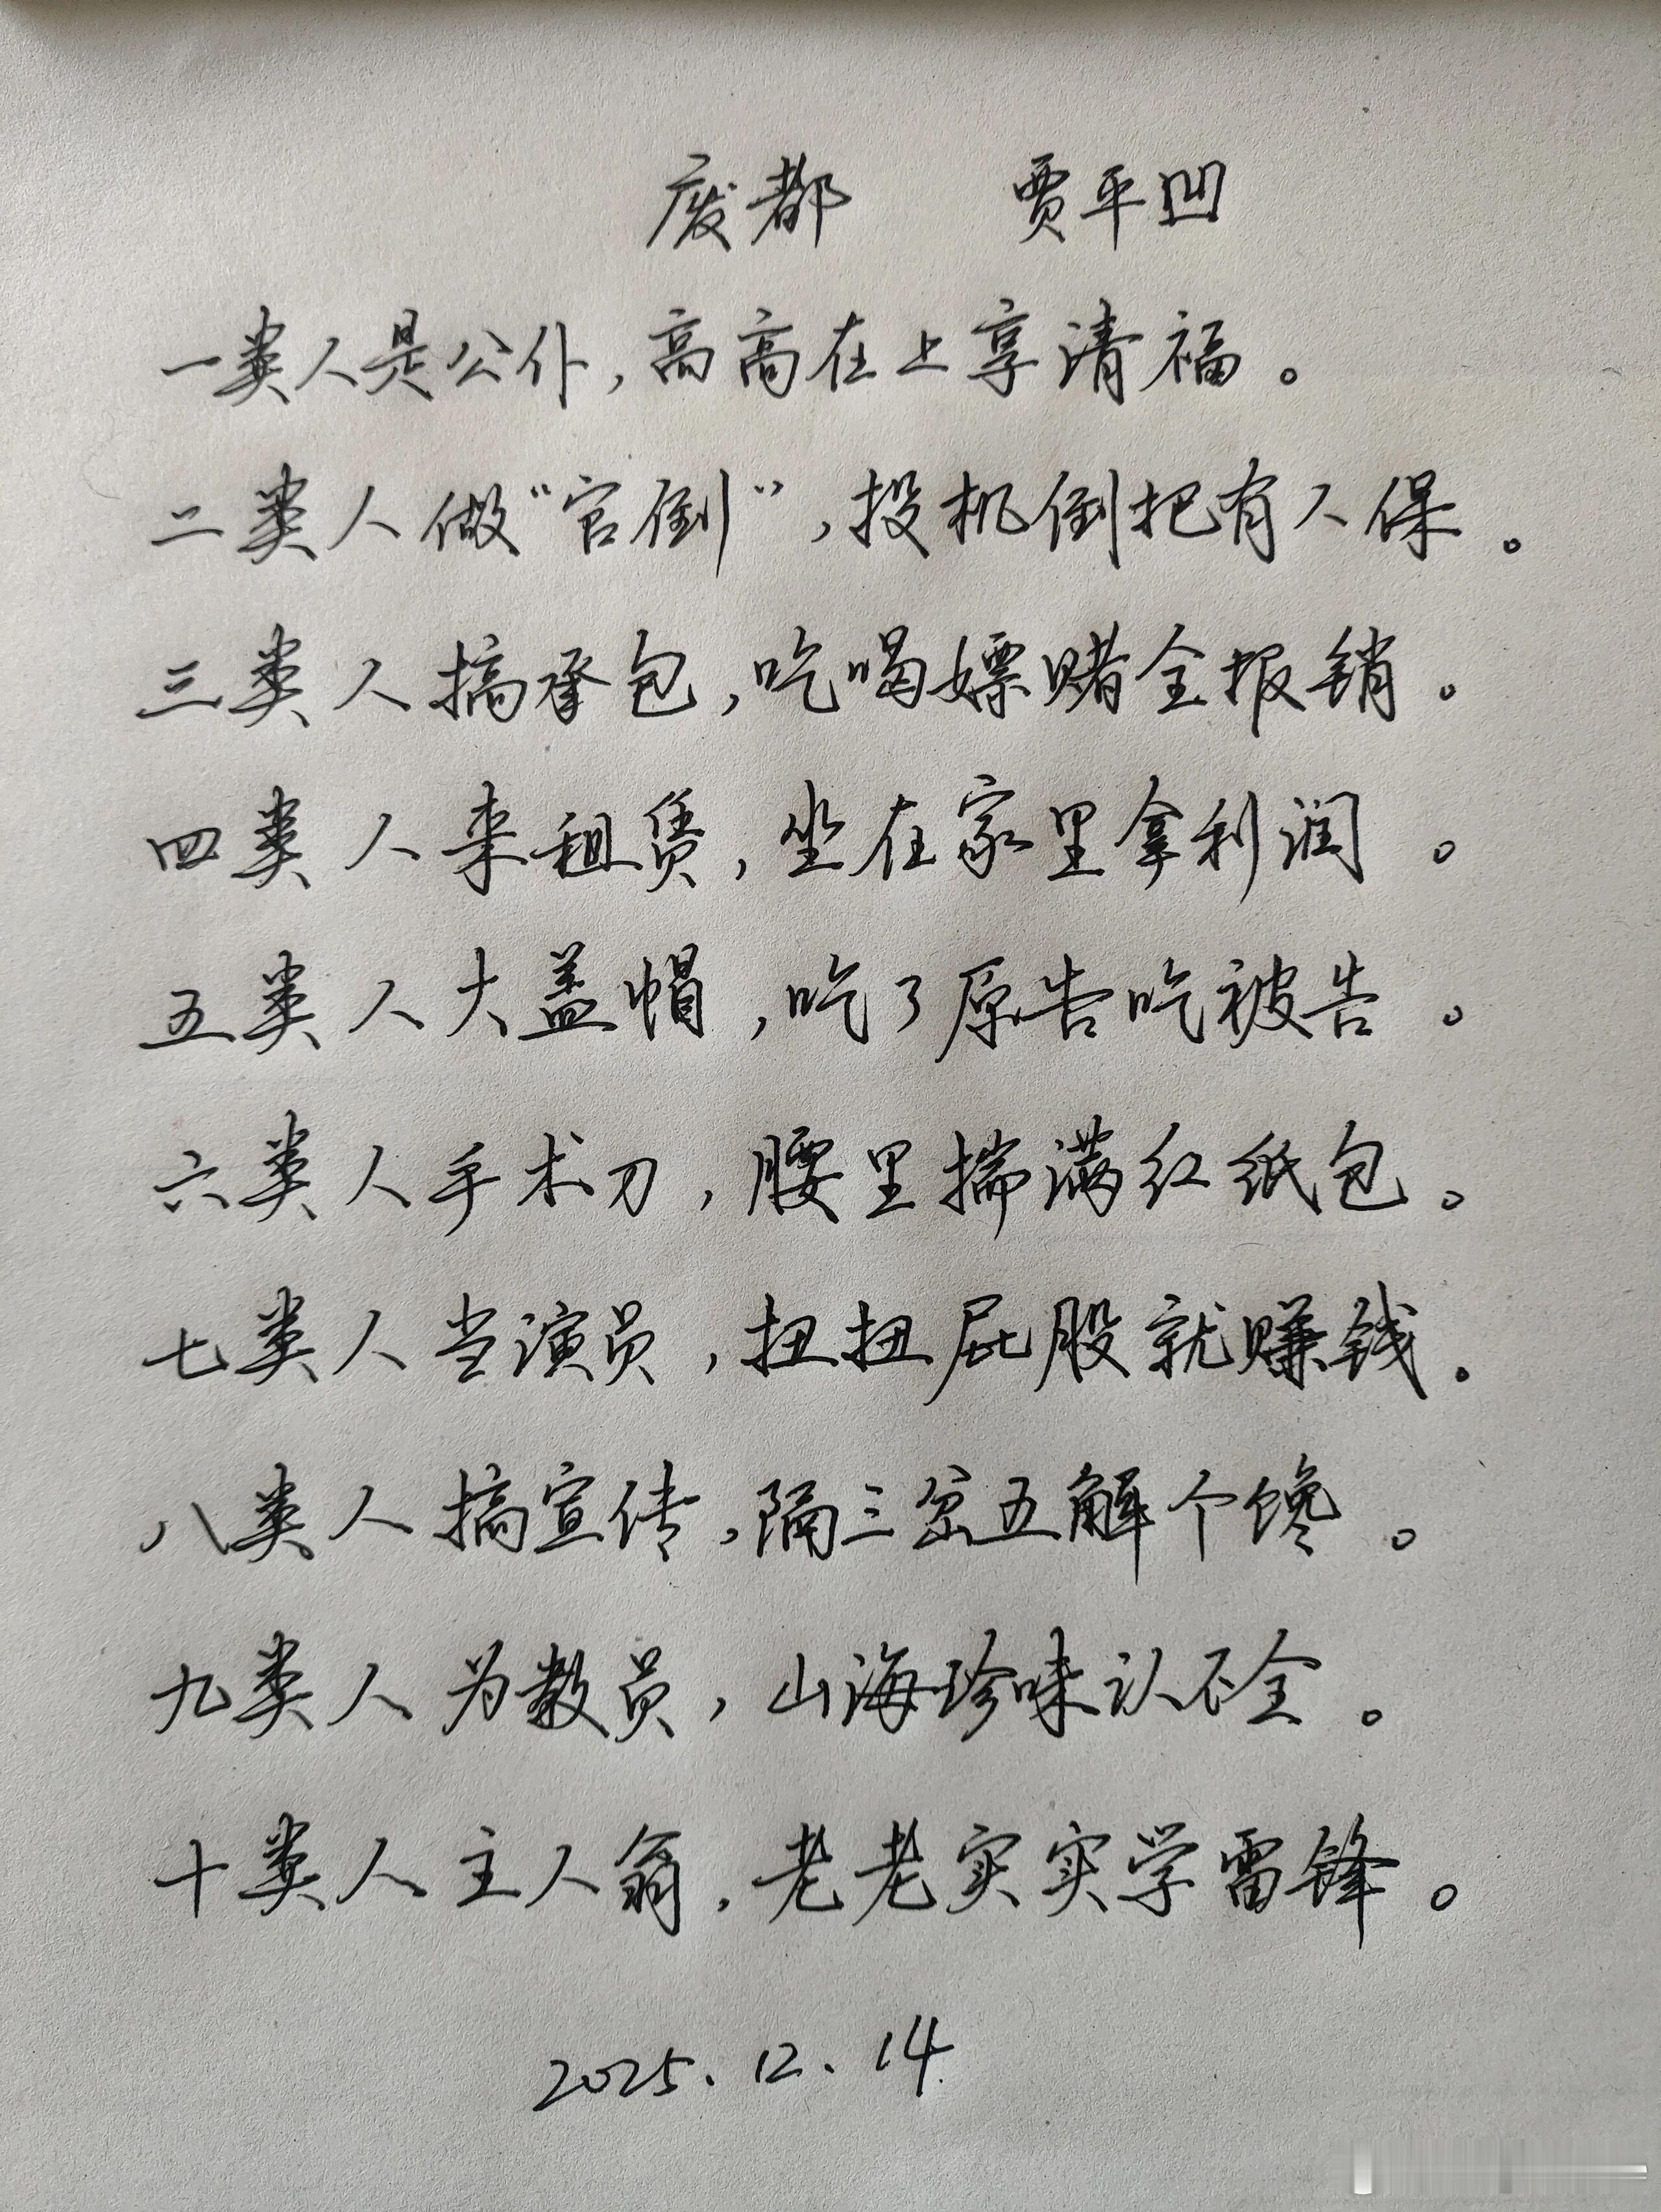 废都 贾平凹
一类人是公仆，高高在上享清福。
二类人做“官倒”，投机倒把有人保。
三类人搞承包，吃喝嫖赌全报销。
四类人来租赁，坐在家里拿利润。
五类人大盖帽，吃了原告吃被告。
六类人手术刀，腰里揣满红纸包。
七类人当演员，扭扭屁股就赚钱。
八类人搞宣传，隔三岔五解个馋。
九类人为教员，山海珍味认不全。
十类人主人翁，老老实实学雷锋。
2025.12.14.